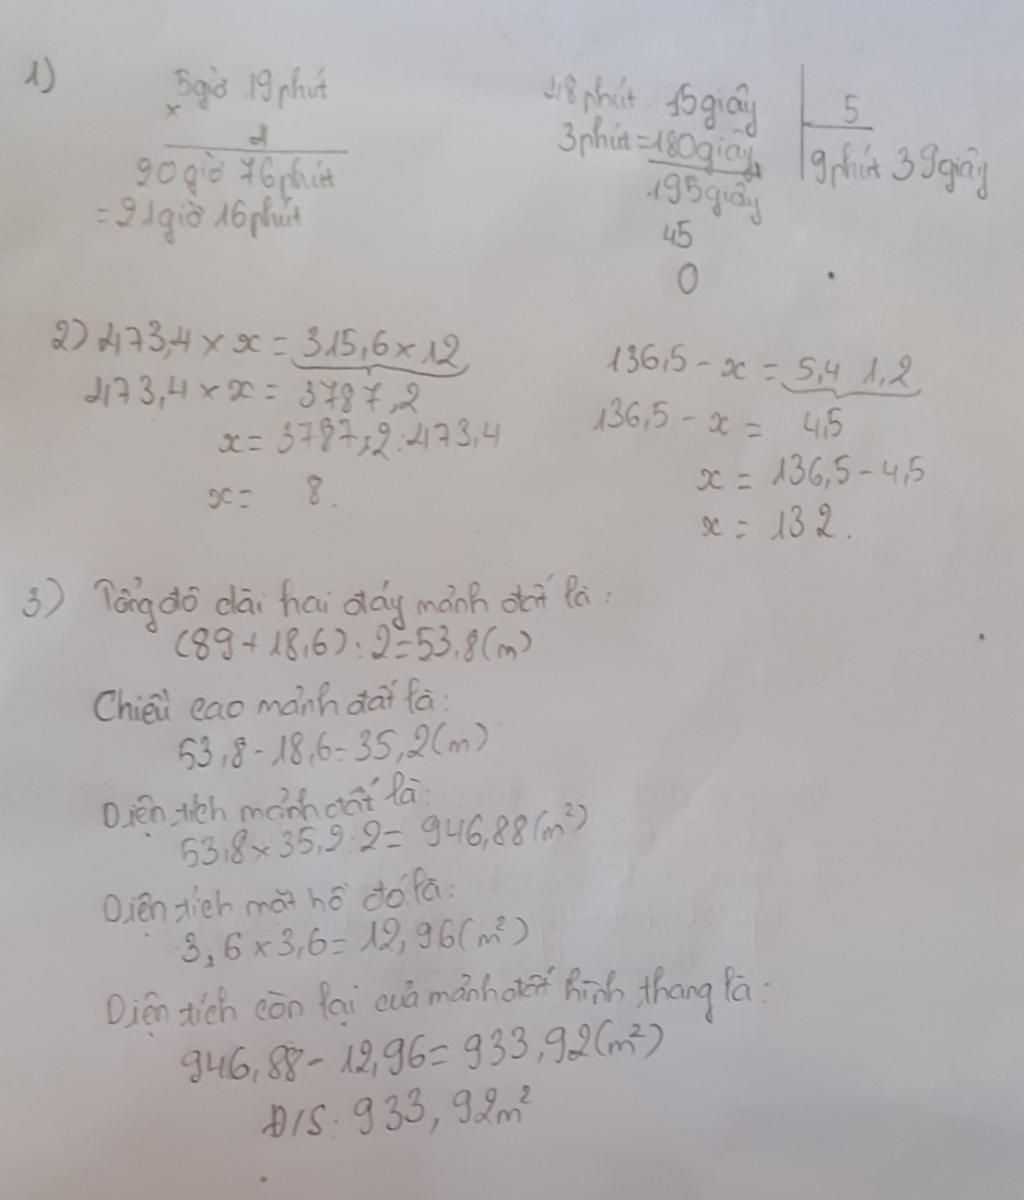 1)
5giờ 19phút
×
4
20giờ 76phút
= 21giờ 16phút
48phút 15giây | 5
3phút = 180giây | 9phút 39giây
195giây
45
0
2) 473,4 × x = 315,6 × 12
473,4 × x = 3787,2
x = 3787,2 : 473,4
x = 8.
136,5 - x = 5,4 1,2
136,5 - x = 4,5
x = 136,5 - 4,5
x = 132.
3) Tổng độ dài hai đáy mảnh đất là:
(89 + 18,6) : 2 = 53,8 (m)
Chiều cao mảnh đất là:
53,8 - 18,6 = 35,2 (m)
Diện tích mảnh đất là:
53,8 × 35,2 : 2 = 946,88 (m²)
Diện tích mặt hồ đó là:
3,6 × 3,6 = 12,96 (m²)
Diện tích còn lại của mảnh đất hình thang là:
946,88 - 12,96 = 933,92 (m²)
Đ/S: 933,92m²